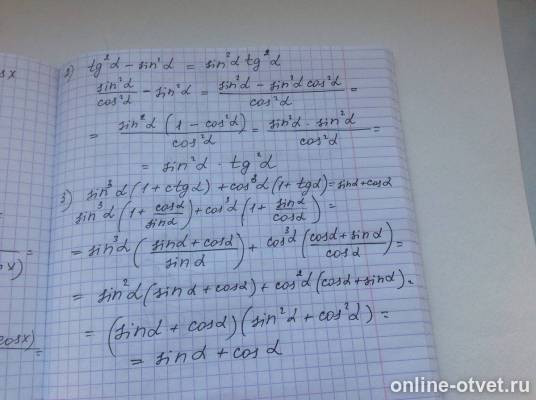 2) tg²α - sin²α = sin²α tg²α
sin²α/cos²α - sin²α = (sin²α - sin²α cos²α)/cos²α =
= sin²α (1 - cos²α)/cos²α = sin²α · sin²α/cos²α =
= sin²α · tg²α
3) sin³α (1 + ctgα) + cos³α (1 + tgα) = sinα + cosα
sin³α (1 + cosα/sinα) + cos³α (1 + sinα/cosα) =
= sin³α ((sinα + cosα)/sinα) + cos³α ((cosα + sinα)/cosα) =
= sin²α (sinα + cosα) + cos²α (cosα + sinα) =
= (sinα + cosα)(sin²α + cos²α) =
= sinα + cosα
online-otvet.ru